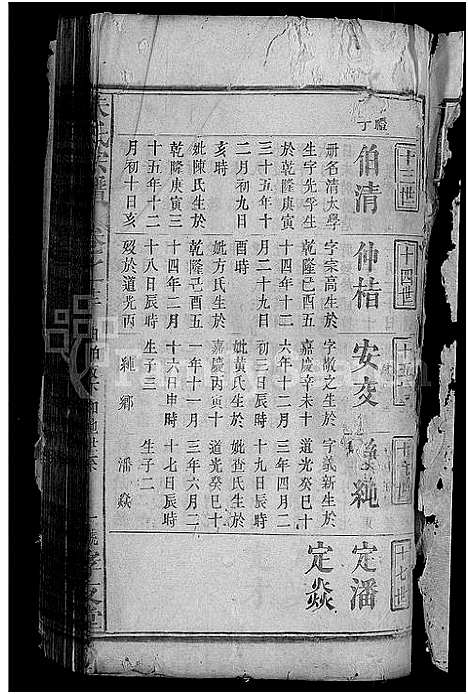 十三世
禮子
伯清
册名清太學
生字先孚生
於乾隆庚寅
三十五年十
二月初九日
亥時
妣陳氏生於
乾隆庚寅三
十五年十二
月初十日亥
十四世
仲楷
字宗高生於
乾隆己酉五
十四年十二
月二十九日
酉時
妣方氏生於
乾隆己酉五
十四年二月
十八日辰時
歿於道光丙
十五
安交
字敬之生於
嘉慶辛未十
六年十二月
初三日辰時
妣黃氏生於
嘉慶丙寅十
一年十一月
十六日申時
生子三
純鄉
世
純
字義新生於
道光癸巳十
三年四月二
十九日辰時
妣查氏生於
道光癸巳十
三年六月二
十七日辰時
生子二
潘焱
十七世
定潘
定焱
氏宗譜